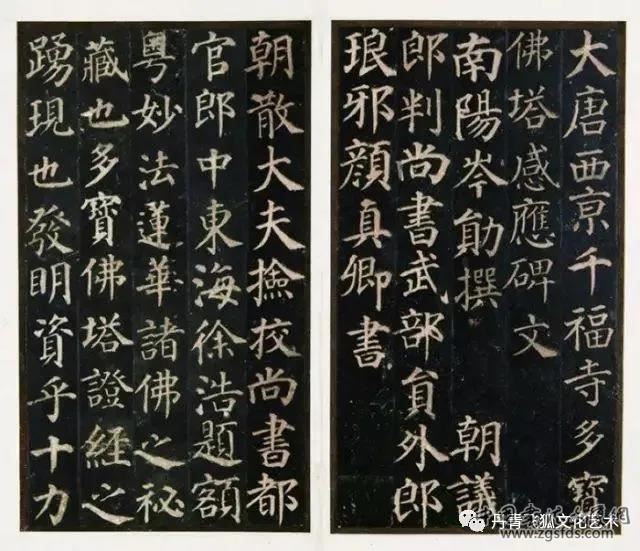 大唐西京千福寺多寶
佛塔感應碑文
南陽岑勛撰　朝議
郎判尚書武部員外郎
琅邪顏真卿書
朝散大夫撿挍尚書都
官郎中東海徐浩題額
粵妙法蓮華諸佛之祕
藏也多寶佛塔證經之
踴現也發明資乎十力
丹青飞狐文化艺术
www.zgsfds.com